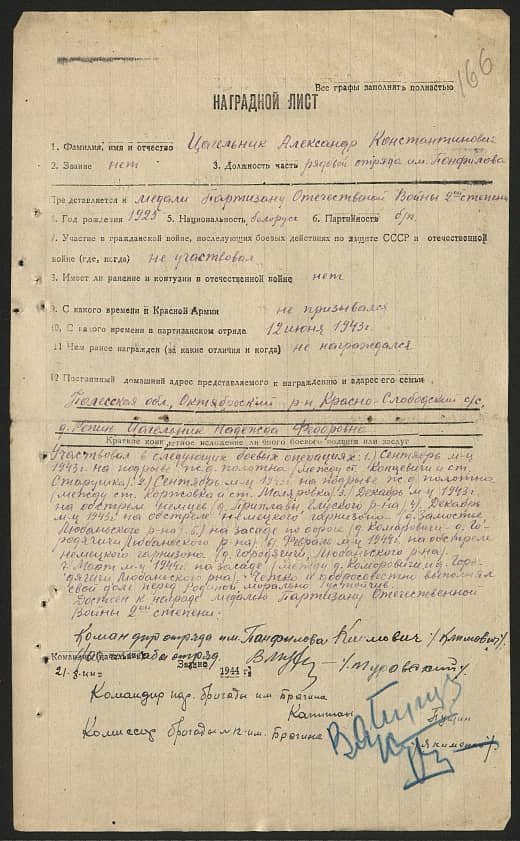 166
Все графы заполнять полностью
НАГРАДНОЙ ЛИСТ
1. Фамилия, имя и отчество Цагельник Александр Константинович
2. Звание нет 3. Должность часть рядовой отряда им. Панфилова
Представляется к медали Партизану Отечественной Войны 2ой степени
4. Год рождения 1925 5. Национальность белорус 6. Партийность б/п.
7. Участие в гражданской войне, последующих боевых действиях по защите СССР и отечественной
войне (где, когда) не участвовал
8. Имеет ли ранение и контузии в отечественной войне нет
9. С какого времени в Красной Армии не призывался
10. С какого времени в партизанском отряде 12 июня 1943 г.
11 Чем ранее награжден (за какие отличия и когда) не награждался
12 Постоянный домашний адрес представляемого к награждению и адрес его семьи
Полесская обл., Октябрьский р-н, Красно-Слободский с/с,
д. Цагельник Надежда Федоровна
Краткое конкретное изложение личного боевого подвига или заслуг
Участвовал в следующих боевых операциях: 1) Сентябрь м-ц
1943 г. на подрыве ж.д. полотна (между ст. Копцевичи и ст.
Старушка). 2) Сентябрь м-ц 1943 г. на подрыве ж.д. полотна
(между ст. Коржовка и ст. ) 3) Декабрь м-ц 1943 г.
на обстреле немцев (д. р-на) 4) Декабрь
м-ц 1943 г. на обстреле немецкого гарнизона (д. Замостье
Любаньского р-на). 5) на засаде по дороге (д. Комаровичи - д. Го-
родятичи Любаньского р-на). 6) Февраль м-ц 1944 г. на обстреле
немецкого гарнизона (д. Городятичи, Любаньского р-на).
7. Март м-ц 1944 г. на засаде (между д. Комаровичи и д. Горо-
дятичи Любаньского р-на). Честно и добросовестно выполнял
свой долг перед Родиной. Морально устойчив.
Достоин к награде медалью Партизану Отечественной
Войны 2ой степени.
Командир отряда им. Панфилова Климович /Климович/.
Командир
Звание /Муровский/
1944 г.
Командир пар. бригады им. Брагина
Капитан
Комиссар бригады им. Брагина
/Якименко/